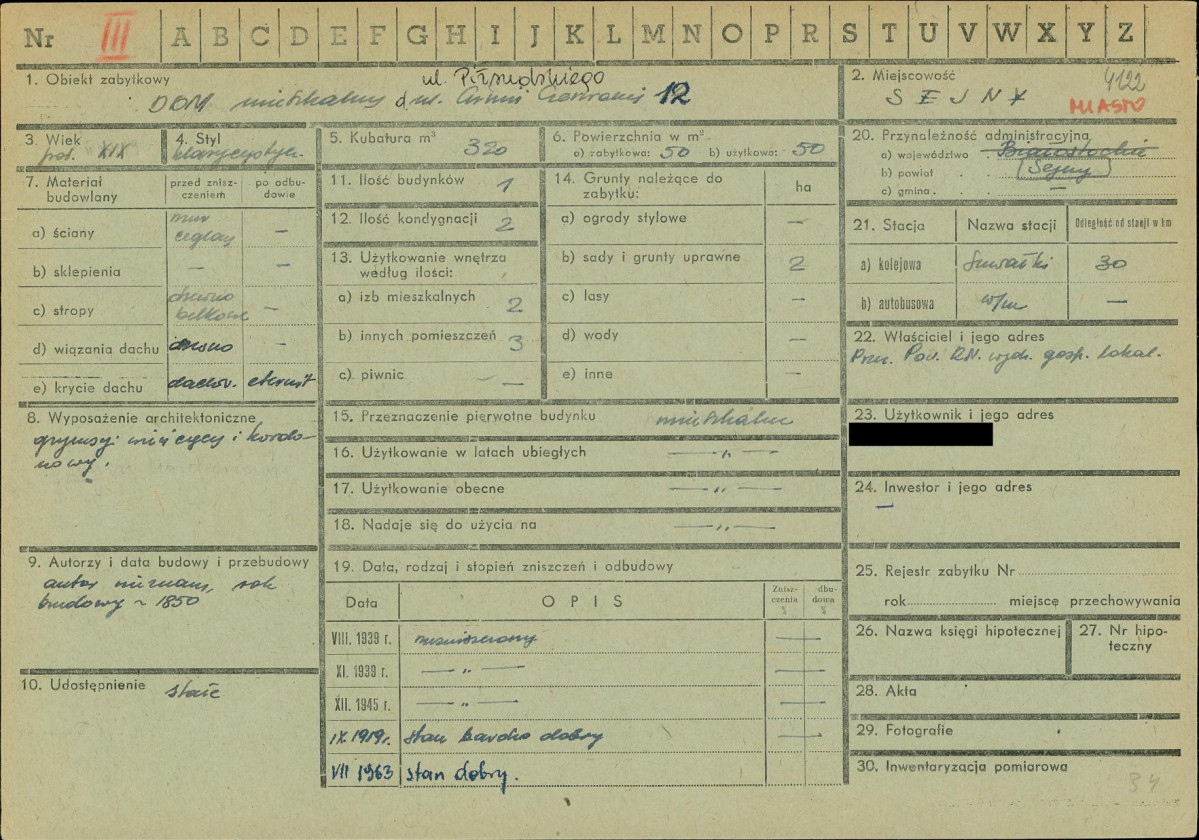 Nr III A B C D E F G H I J K L M N O P R S T U V W X Y Z
1. Obiekt zabytkowy
ul. Piłsudskiego
DOM mieszkalny d. ul. Armii Czerwonej 12
2. Miejscowość
4122
SEJNY
MIASTO
3. Wiek
poł. XIX
4. Styl
klasycystycz.
5. Kubatura m³ 320
6. Powierzchnia w m²
a) zabytkowa: 50 b) użytkowa: 50
7. Materiał budowlany
przed zniszczeniem
po odbudowie
a) ściany mur ceglany —
b) sklepienia — —
c) stropy drewno belkowe —
d) wiązania dachu drewno —
e) krycie dachu dachów. eternit
8. Wyposażenie architektoniczne
gzymsy: wieńczący i kordo-
nowy.
9. Autorzy i data budowy i przebudowy
autor nieznany, rok
budowy ~ 1850
10. Udostępnienie stałe
11. Ilość budynków 1
12. Ilość kondygnacji 2
13. Użytkowanie wnętrza
według ilości:
a) izb mieszkalnych 2
b) innych pomieszczeń 3
c) piwnic —
14. Grunty należące do
zabytku: ha
a) ogrody stylowe —
b) sady i grunty uprawne 2
c) lasy —
d) wody —
e) inne —
15. Przeznaczenie pierwotne budynku mieszkalne
16. Użytkowanie w latach ubiegłych — " —
17. Użytkowanie obecne — " —
18. Nadaje się do użycia na — " —
19. Data, rodzaj i stopień zniszczeń i odbudowy
Data OPIS Zniszczenia % dbudowa %
VIII. 1939 r. niezniszczony —
XI. 1939 r. — " — —
XII. 1945 r. — " — —
IX. 1959 r. stan bardzo dobry —
VII 1963 stan dobry.
20. Przynależność administracyjna
a) województwo Białostockie
b) powiat Sejny
c) gmina —
21. Stacja Nazwa stacji Odległość od stacji w km
a) kolejowa Suwałki 30
b) autobusowa w/m —
22. Właściciel i jego adres
Prez. Pow. R.N. wydz. gosp. lokal.
23. Użytkownik i jego adres
24. Inwestor i jego adres
—
25. Rejestr zabytku Nr
rok miejscę przechowywania
26. Nazwa księgi hipotecznej
27. Nr hipo-
teczny
28. Akta
29. Fotografie
30. Inwentaryzacja pomiarowa
34